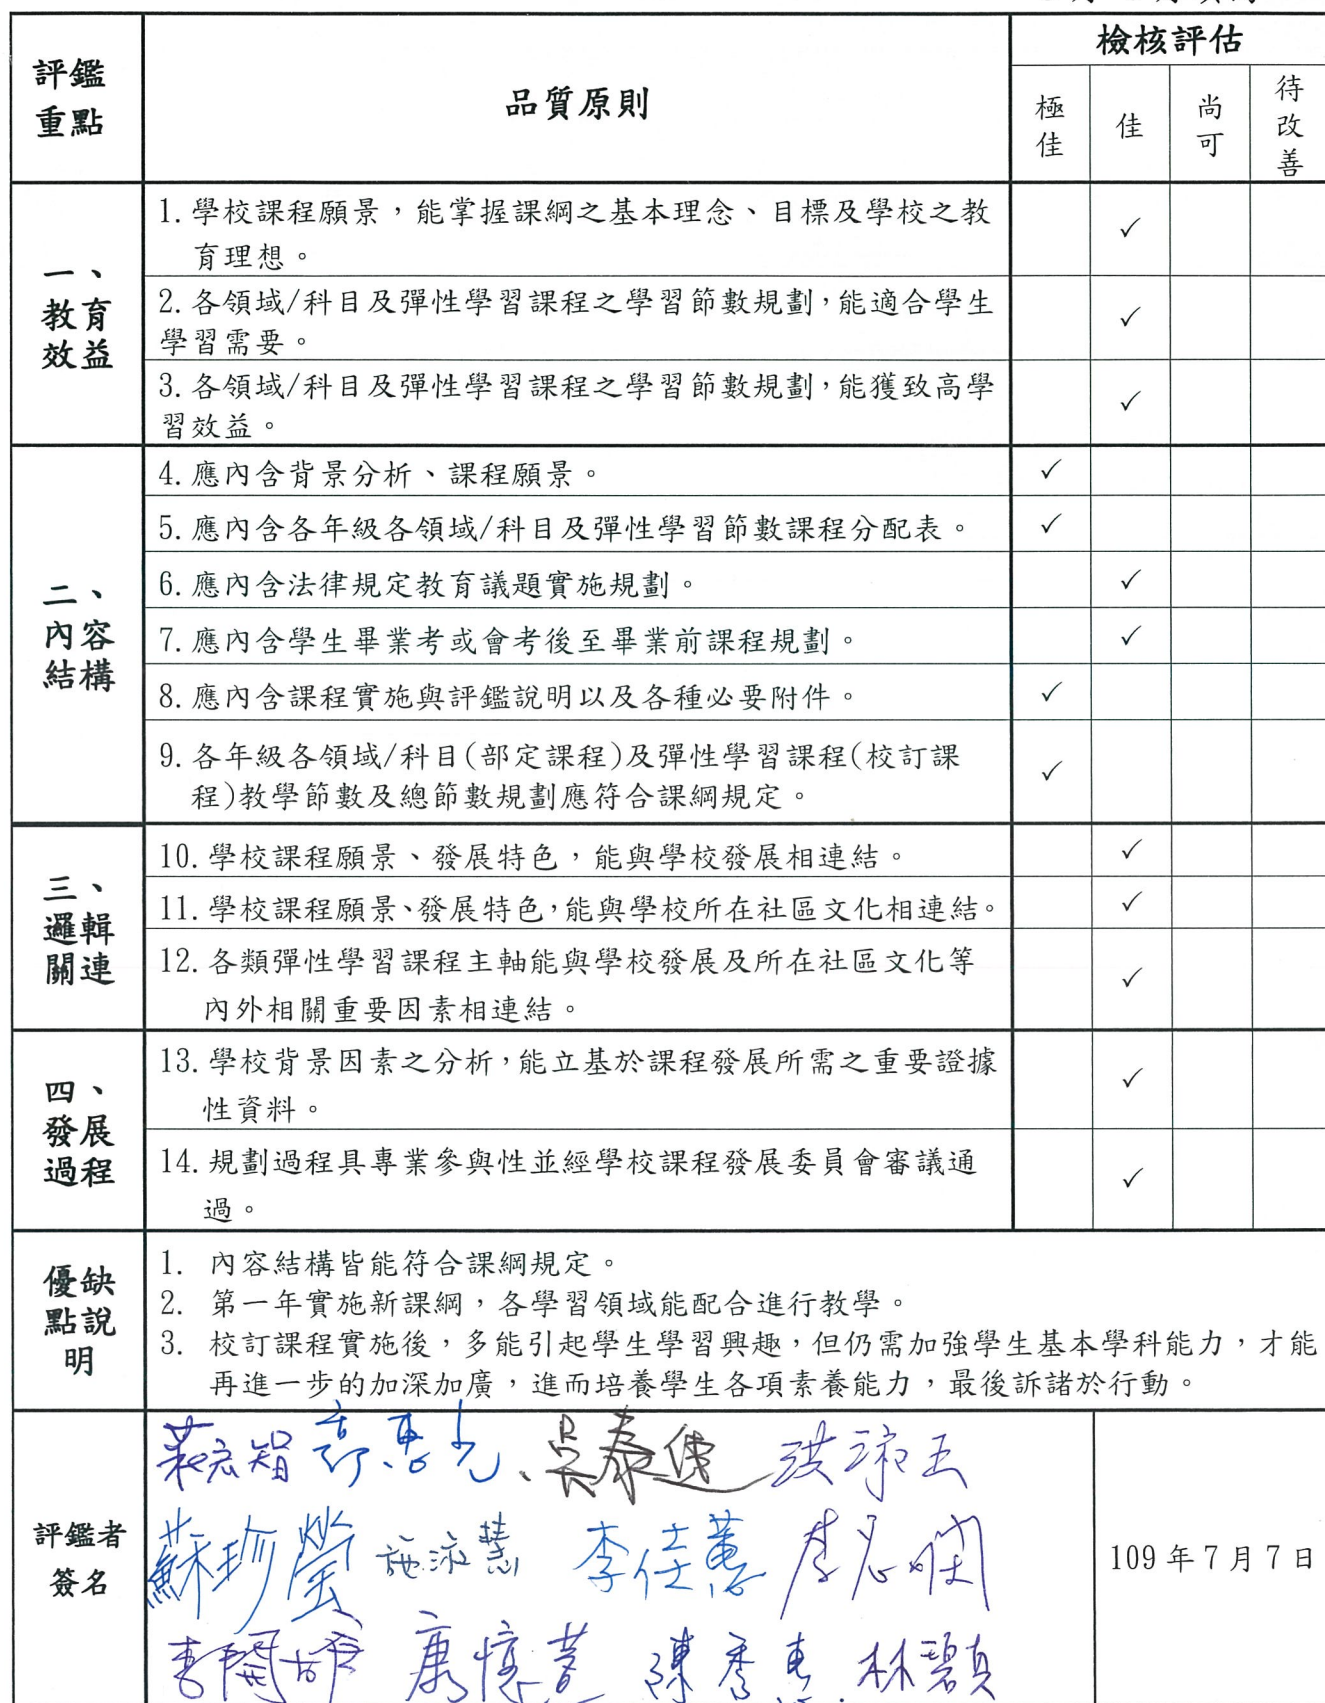 評鑑
重點
品質原則
檢核評估
極佳
佳
尚可
待改善
一、
教育
效益
1.學校課程願景,能掌握課綱之基本理念、目標及學校之教
育理想。
✓
2.各領域/科目及彈性學習課程之學習節數規劃,能適合學生
學習需要。
✓
3.各領域/科目及彈性學習課程之學習節數規劃,能獲致高學
習效益。
✓
二、
內容
結構
4.應內含背景分析、課程願景。
✓
5.應內含各年級各領域/科目及彈性學習節數課程分配表。
✓
6.應內含法律規定教育議題實施規劃。
✓
7.應內含學生畢業考或會考後至畢業前課程規劃。
✓
8.應內含課程實施與評鑑說明以及各種必要附件。
✓
9.各年級各領域/科目(部定課程)及彈性學習課程(校訂課
程)教學節數及總節數規劃應符合課綱規定。
✓
三、
邏輯
關連
10.學校課程願景、發展特色,能與學校發展相連結。
✓
11.學校課程願景、發展特色,能與學校所在社區文化相連結。
✓
12.各類彈性學習課程主軸能與學校發展及所在社區文化等
內外相關重要因素相連結。
✓
四、
發展
過程
13.學校背景因素之分析,能立基於課程發展所需之重要證據
性資料。
✓
14.規劃過程具專業參與性並經學校課程發展委員會審議通
過。
✓
優缺
點說
明
1. 內容結構皆能符合課綱規定。
2. 第一年實施新課綱,各學習領域能配合進行教學。
3. 校訂課程實施後,多能引起學生學習興趣,但仍需加強學生基本學科能力,才能
再進一步的加深加廣,進而培養學生各項素養能力,最後訴諸於行動。
評鑑者
簽名
吳泰傑
蘇珍瑩 施淑慧 李佳蕙
109年7月7日